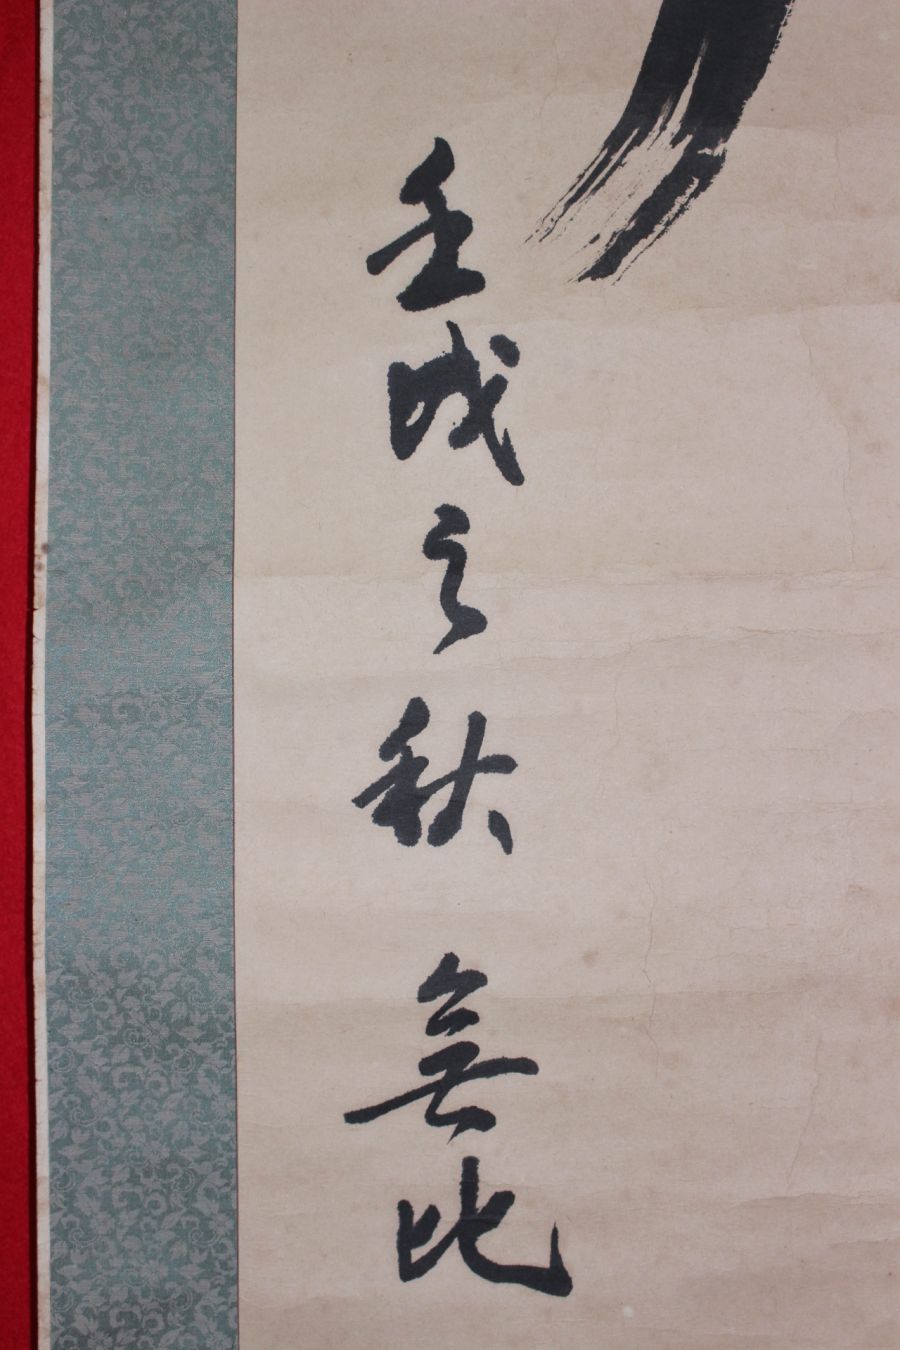 壬戌之秋 無比